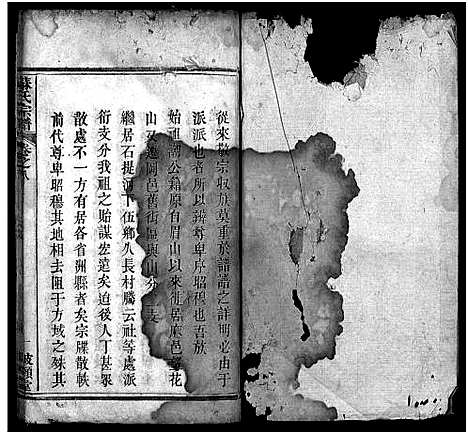 從來敬宗收族莫重於譜譜之詳明必由于
派派也者所以辨尊卑序昭穆也吾族
始祖 公籍原自眉山以來徙居麻邑 花
山 岡邑舊街 與山分 支
繼居石提河下伍鄉久長村騰云社等處派
衍支分我祖之貽謀宏遠矣迨後人丁甚眾
散處不一方有居各省洲縣者矣宗牒散軼
前代尊卑昭穆其地相去阻于方域之殊其
氏宗譜
卷之八